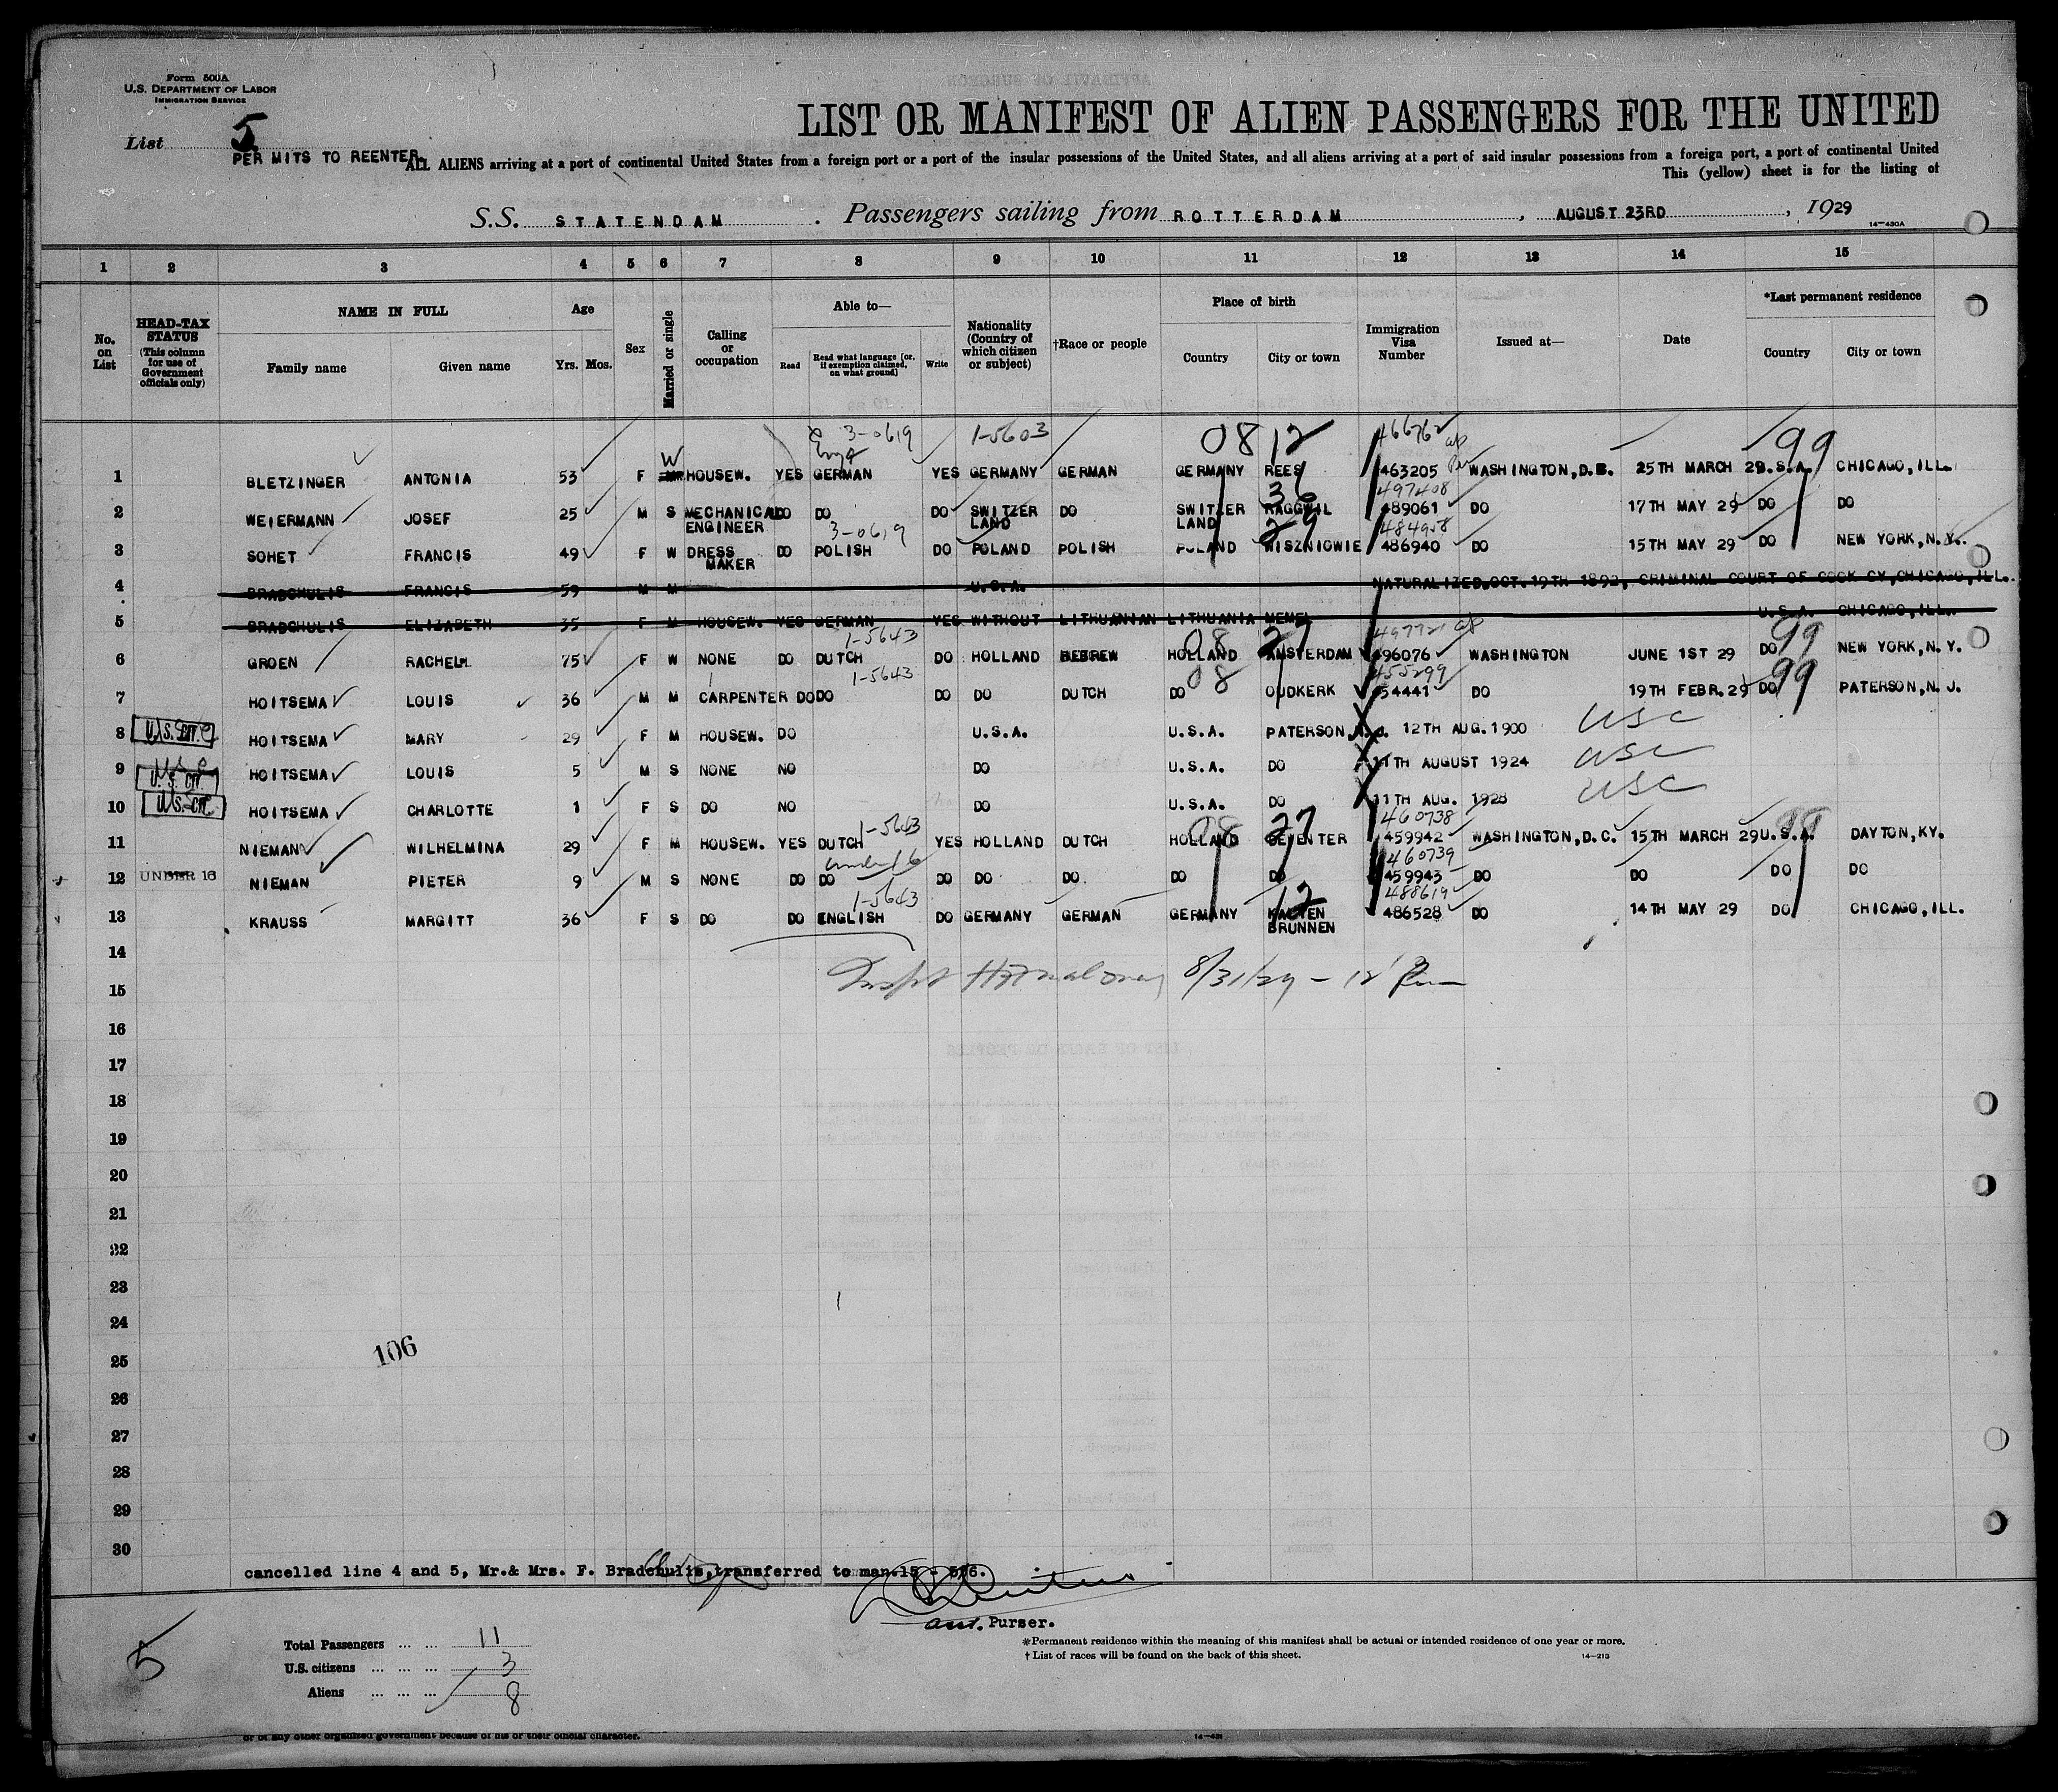 Form 500A
U.S. DEPARTMENT OF LABOR
IMMIGRATION SERVICE
LIST OR MANIFEST OF ALIEN PASSENGERS FOR THE UNITED
List 5
PERMITS TO REENTER.
ALL ALIENS arriving at a port of continental United States from a foreign port or a port of the insular possessions of the United States, and all aliens arriving at a port of said insular possessions from a foreign port, a port of continental United
This (yellow) sheet is for the listing of
S.S. STATENDAM . Passengers sailing from ROTTERDAM , AUGUST 23RD , 1929
14—430A
1 2 3 4 5 6 7 8 9 10 11 12 13 14 15
No. on List
HEAD-TAX STATUS (This column for use of Government officials only)
NAME IN FULL Family name Given name
Age Yrs. Mos.
Sex
Married or single
Calling or occupation
Able to— Read Read what language (or, if exemption claimed, on what ground) Write
Nationality (Country of which citizen or subject)
†Race or people
Place of birth Country City or town
Immigration Visa Number
Issued at—
Date
*Last permanent residence Country City or town
3-0619 1-5603 08 12 466762 99
1 BLETZINGER ANTONIA 53 F W HOUSEW. YES GERMAN YES GERMANY GERMAN GERMANY REES 463205 WASHINGTON, D.C. 25TH MARCH 29 U.S.A. CHICAGO, ILL.
36 497408
2 WEIERMANN JOSEF 25 M S MECHANICAL ENGINEER DO DO DO SWITZER LAND DO SWITZER LAND RAGGWIL 489061 DO 17TH MAY 29 DO DO
3-0619 29 484958
3 SOHET FRANCIS 49 F W DRESS MAKER DO POLISH DO POLAND POLISH POLAND WISZNIOWIE 486940 DO 15TH MAY 29 DO NEW YORK, N.Y.
4 BRADCHULIS FRANCIS 59 M M U.S.A. NATURALIZED, OCT. 19TH 1892, CRIMINAL COURT OF COOK CY, CHICAGO, ILL.
5 BRADCHULIS ELIZABETH 35 F M HOUSEW. YES GERMAN YES WITHOUT LITHUANIAN LITHUANIA MEMEL U.S.A. CHICAGO, ILL.
1-5643 08 27 497721 99
6 GROEN RACHEL 75 F W NONE DO DUTCH DO HOLLAND HEBREW HOLLAND AMSTERDAM 496076 WASHINGTON JUNE 1ST 29 DO NEW YORK, N.Y.
1-5643 08 455299 99
7 HOITSEMA LOUIS 36 M M CARPENTER DO DO DO DO DUTCH DO OUDKERK 454441 DO 19TH FEBR. 29 DO PATERSON, N.J.
8 U.S. CIT. HOITSEMA MARY 29 F M HOUSEW. DO U.S.A. U.S.A. PATERSON, N.J. 12TH AUG. 1900 USC
9 U.S. CIT. HOITSEMA LOUIS 5 M S NONE NO DO U.S.A. DO 11TH AUGUST 1924 USC
10 U.S. CIT. HOITSEMA CHARLOTTE 1 F S DO NO DO U.S.A. DO 11TH AUG. 1928 USC
1-5643 08 27 460738 99
11 NIEMAN WILHELMINA 29 F M HOUSEW. YES DUTCH YES HOLLAND DUTCH HOLLAND DEVENTER 459942 WASHINGTON, D.C. 15TH MARCH 29 U.S.A. DAYTON, KY.
under 16 460739
12 UNDER 16 NIEMAN PIETER 9 M S NONE DO DO DO DO DO DO DO 459943 DO DO DO DO
1-5643 12 488619
13 KRAUSS MARGITT 36 F S DO DO ENGLISH DO GERMANY GERMAN GERMANY KALTEN BRUNNEN 486528 DO 14TH MAY 29 DO CHICAGO, ILL.
14
8/31/29 - 12
15
16
17
18
19
20
21
22
23
24
106
25
26
27
28
29
30
cancelled line 4 and 5, Mr.& Mrs. F. Bradchulis, transferred to man.15 - 5/6.
asst. Purser.
5
Total Passengers 11
U.S. citizens 3
Aliens 8
*Permanent residence within the meaning of this manifest shall be actual or intended residence of one year or more.
† List of races will be found on the back of this sheet.
14—213
or of any other organized government because of his or their official character.
14—431